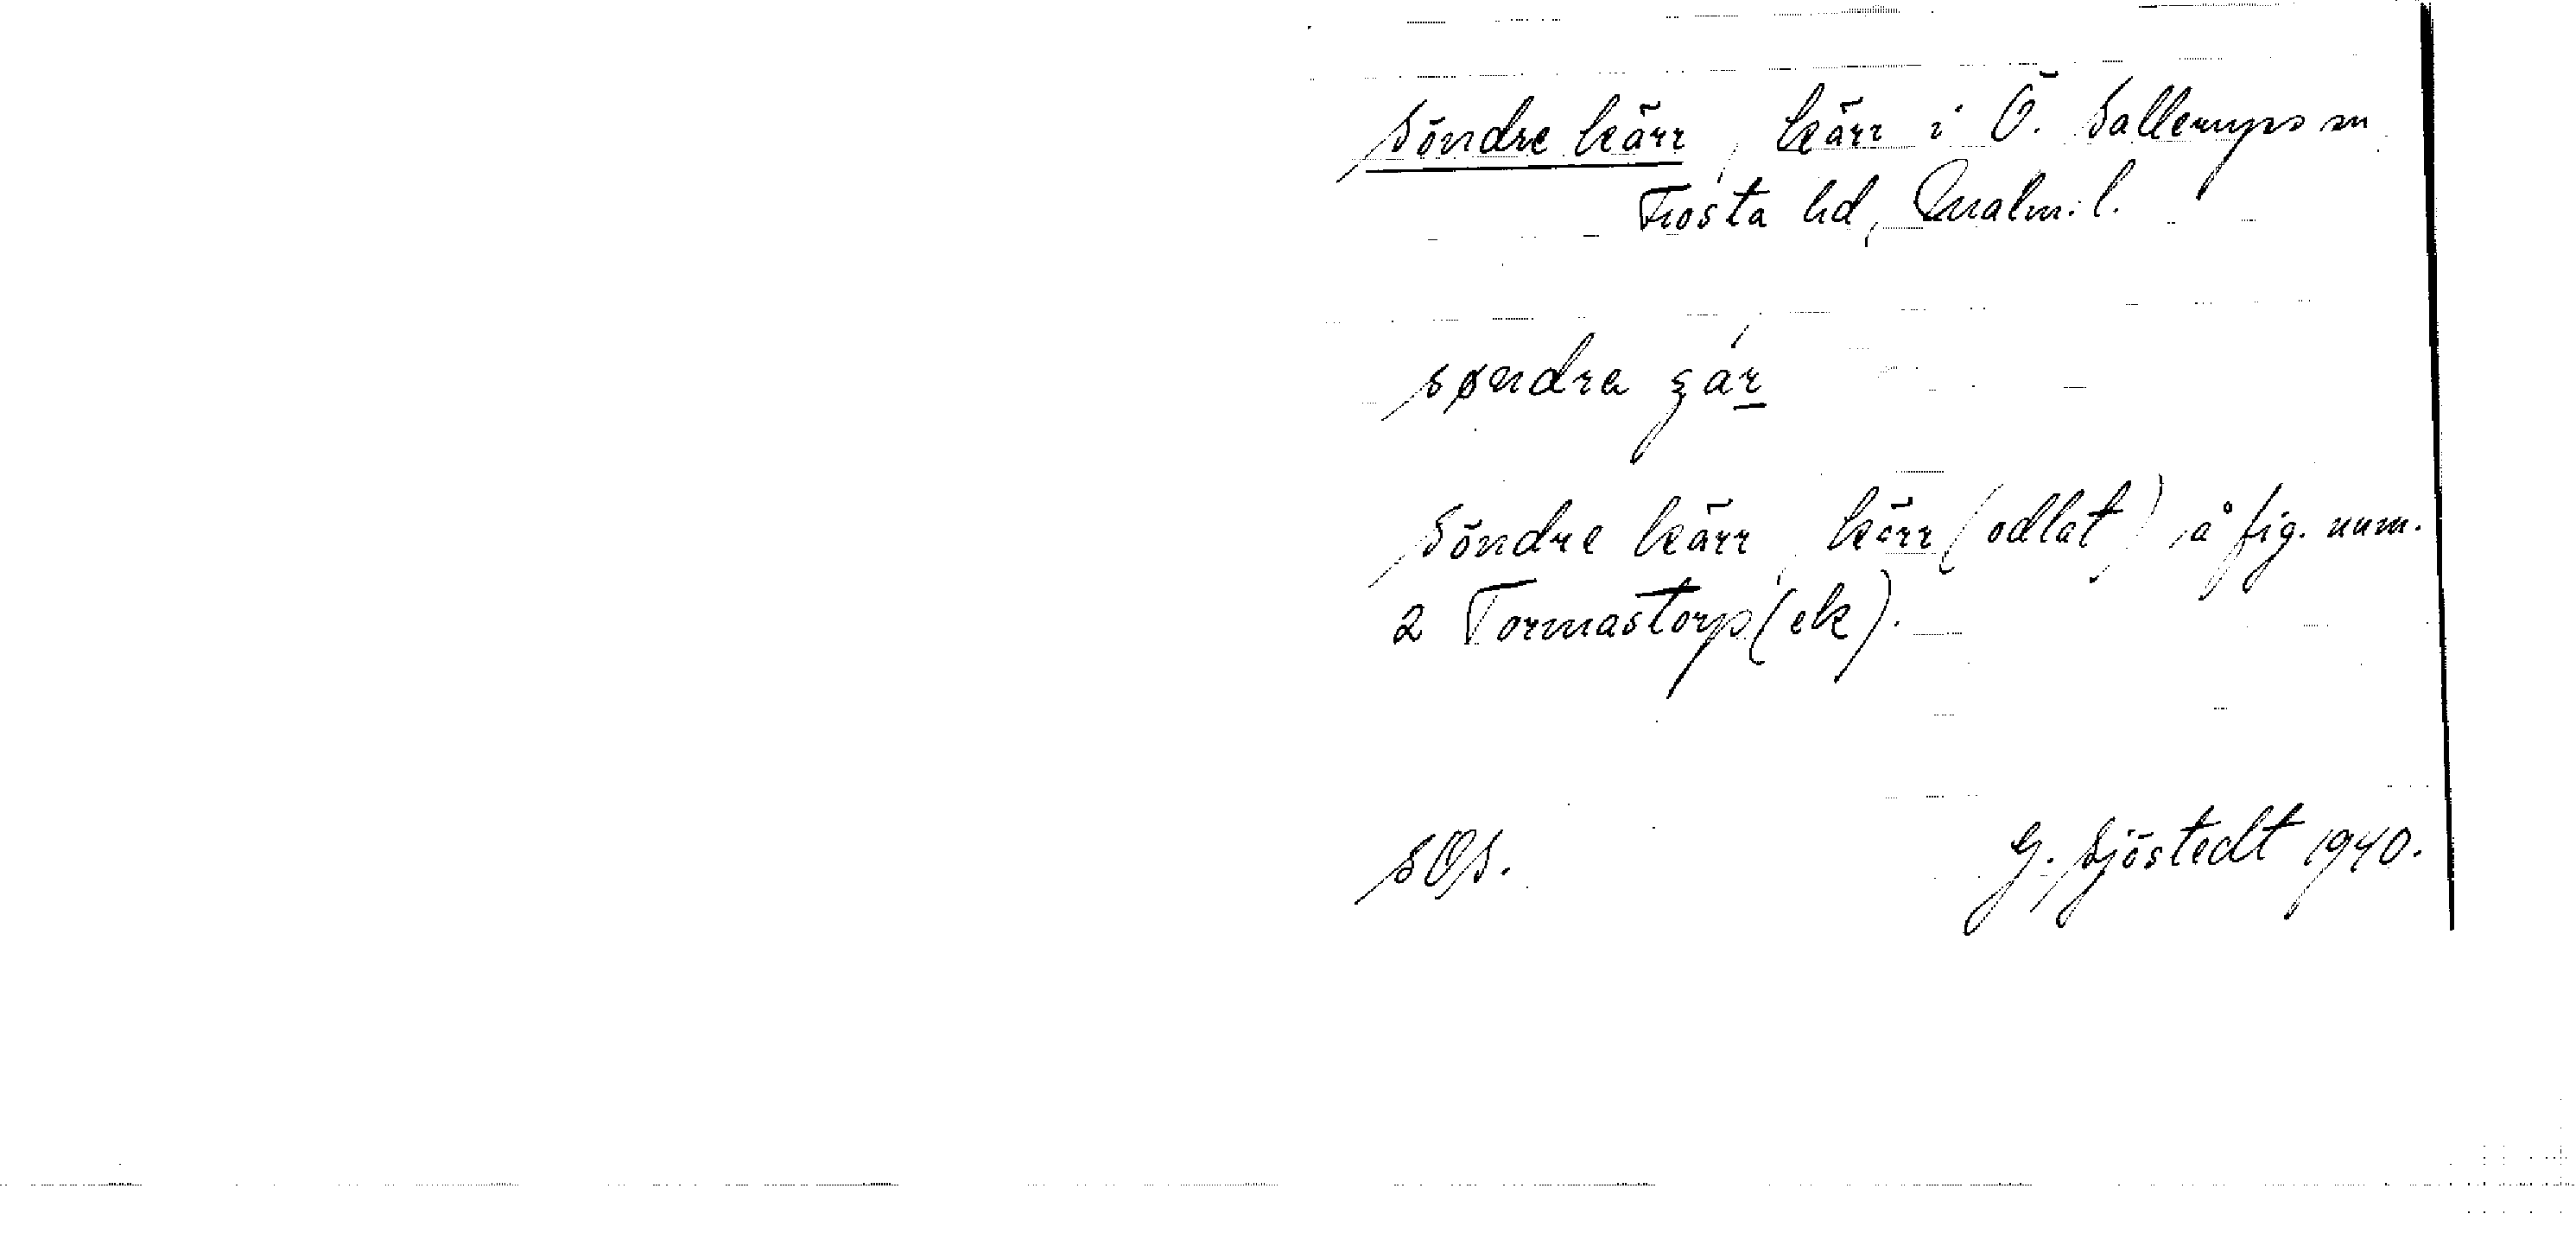 Söndre kärr, kärr i Ö. Sallerups sn
Frosta hd, Malm. l.
søndra ʒár
Söndre kärr, kärr (odlat) å fig. num.
2 Tormastorp (ek).
sOs. G. Sjöstedt 1940.